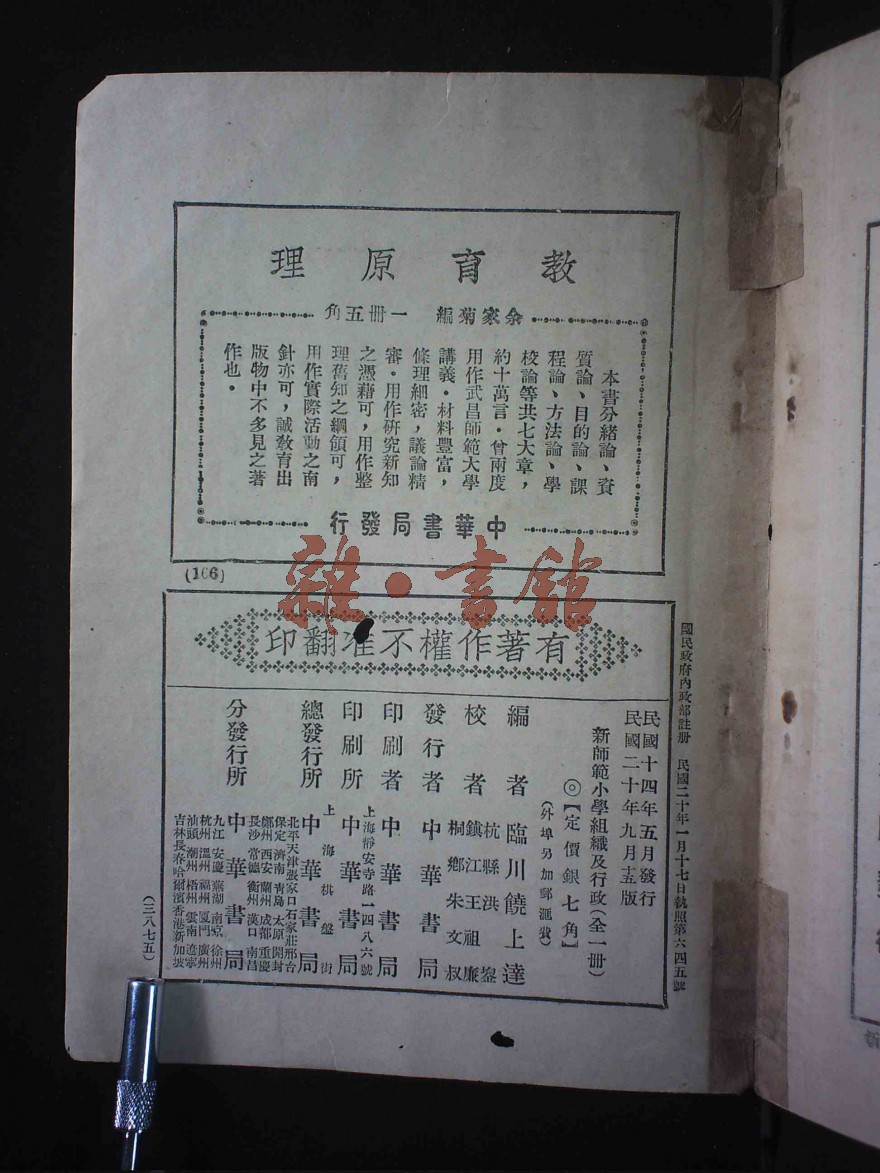 教育原理
余家菊編 一册五角
本書分緒論、資
質論、目的論、課
程論、方法論、學
校論等共七大章，
約十萬言。曾兩度
用作武昌師範大學
講義。材料豐富，
條理細密，議論精
審。用作研究新知
之憑藉可，用作整
理舊知之綱領可，
用作實際活動之南
針亦可，誠教育出
版物中不多見之著
作也。
中華書局發行
(106)
雜·書館
有著作權不准翻印
國民政府內政部註册 民國二十年一月十七日執照第六四五號
民國十四年五月發行
民國二十年九月十五版
新師範小學組織及行政(全一册)
◎【定價銀七角】
(外埠另加郵滙費)
編者 臨川饒上達
校者 杭縣洪鋆
鎮江王祖廉
桐鄉朱文叔
發行者 中華書局
印刷者 中華書局
印刷所 上海靜安寺路一四八六號
中華書局
總發行所 上海棋盤街
中華書局
分發行所 中華書局
北平 天津 張家口 石家莊 邢台
保定 濟南 青島 太原 開封
鄭州 西安 蘭州 成都 重慶
長沙 常德 衡州 漢口 南昌
九江 安慶 蕪湖 南京 徐州
杭州 溫州 福州 厦門 廣州
汕頭 潮州 梧州 雲南 遼寧
吉林 長春 哈爾濱 香港 新加坡
(三八七五)